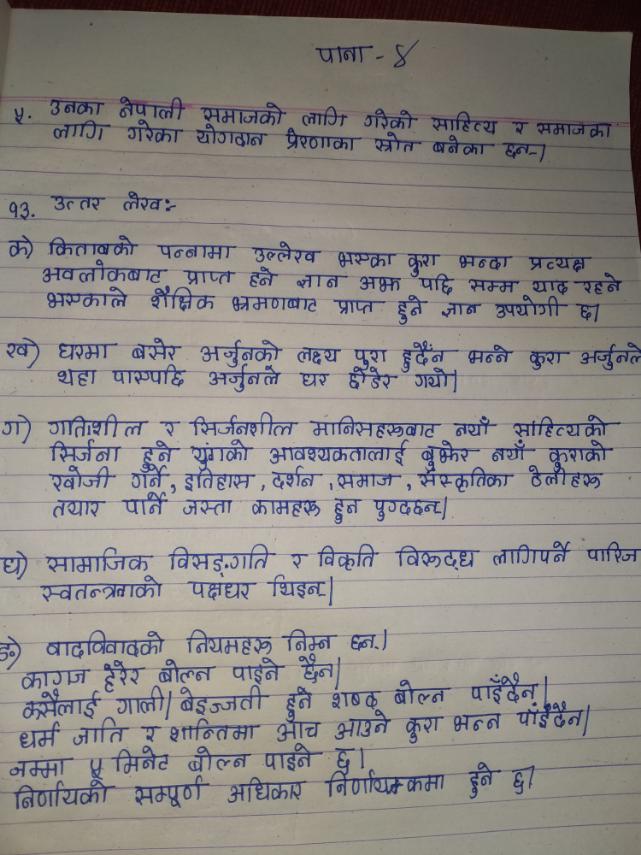 पाना - ४
५. उनका नेपाली समाजको लागि गरेको साहित्य र समाजका
लागि गरेका योगदान प्रेरणाका स्रोत बनेका छन्।
१३. उत्तर लेख:-
क) किताबको पन्नामा उल्लेख भएका कुरा भन्दा प्रत्यक्ष
अवलोकबाट प्राप्त हने ज्ञान अझ पछि सम्म याद रहने
भएकाले शैक्षिक भ्रमणबाट प्राप्त हुने ज्ञान उपयोगी छ।
ख) घरमा बसेर अर्जुनको लक्ष्य पुरा हुदैँन भन्ने कुरा अर्जुनले
थहा पाएपछि अर्जुनले घर छोडेर गयो।
ग) गतिशील र सिर्जनशील मानिसहरूबाट नयाँ साहित्यको
सिर्जना हुने युगको आवश्यकतालाई बुझेर नयाँ कुराको
खोजी गर्ने, इतिहास, दर्शन, समाज, संस्कृतिका ठेलीहरू
तयार पार्ने जस्ता कामहरू हुन पुग्दछन्।
घ) सामाजिक विसङ्गति र विकृति विरूद्ध लागिपर्ने पारिज
स्वतन्त्रताको पक्षधर थिइन्।
ङ) वादविवादको नियमहरू निम्न छन्।
कागज हेरेर बोल्न पाइने छैन।
कसैलाई गाली/बेइज्जती हुने शब्द बोल्न पाइँदैन।
धर्म जाति र शान्तिमा आच आउने कुरा भन्न पाइँदैन।
जम्मा ५ मिनेट बोल्न पाइने छ।
निर्णायको सम्पूर्ण अधिकार निर्णायकमा हुने छ।